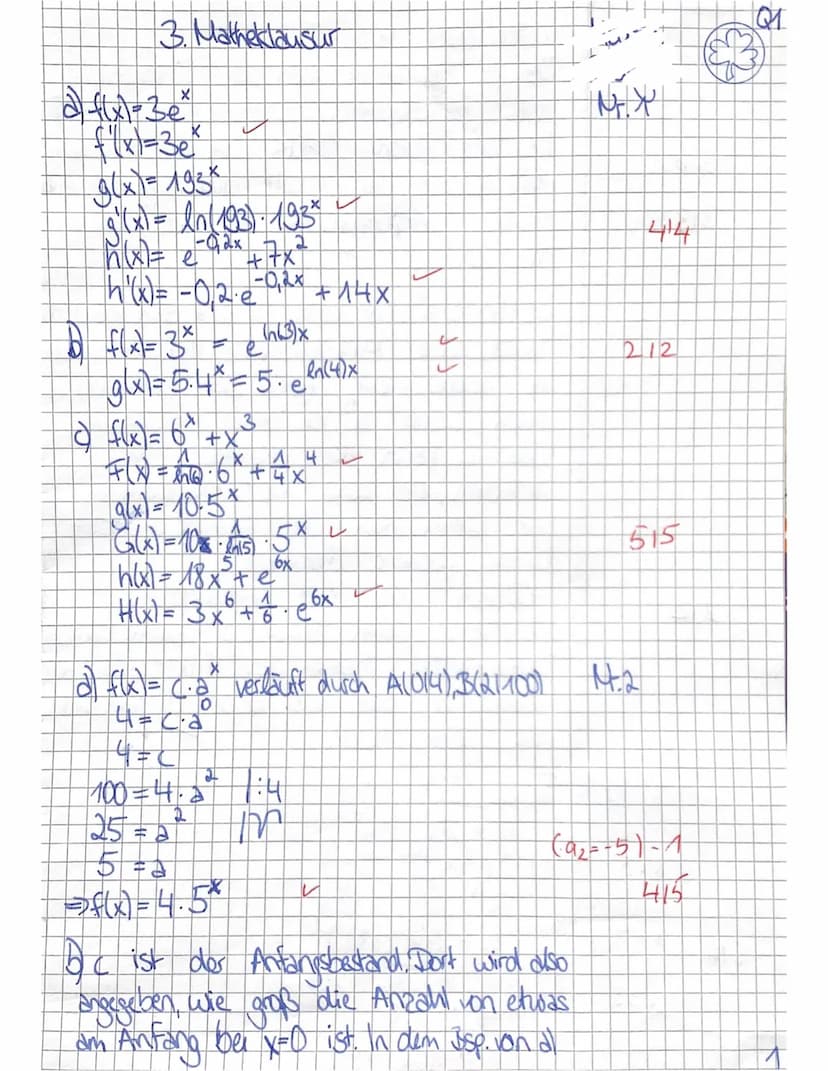 3. Matheklausur
Q1
Nr. 1
a) f(x)=3e^x
f'(x)=3e^x ✓
g(x)=193^x
g'(x)= ln(193)·193^x ✓
4/4
h(x)= e^-0,2x +7x^2
h'(x)= -0,2·e^-0,2x +14x ✓
b) f(x)=3^x = e^ln(3)x ✓
2/2
g(x)=5·4^x = 5·e^ln(4)x ✓
c) f(x)=6^x +x^3
F(x)=1/ln(6)·6^x + 1/4 x^4 ✓
g(x)=10·5^x
G(x)=10·1/ln(5)·5^x ✓
5/5
h(x)=18x^5 + e^6x
H(x)=3x^6 + 1/6·e^6x ✓
Nr. 2
a) f(x)= c·a^x verläuft durch A(0|4), B(2|100)
4=c·a^0
4=c
100=4·a^2 |:4
25=a^2 |√
5=a
(a₂=-5) -1
⇒f(x)=4·5^x ✓
4/5
b) c ist der Anfangsbestand. Dort wird also
angegeben, wie groß die Anzahl von etwas
am Anfang bei x=0 ist. In dem Bsp. von a)
1